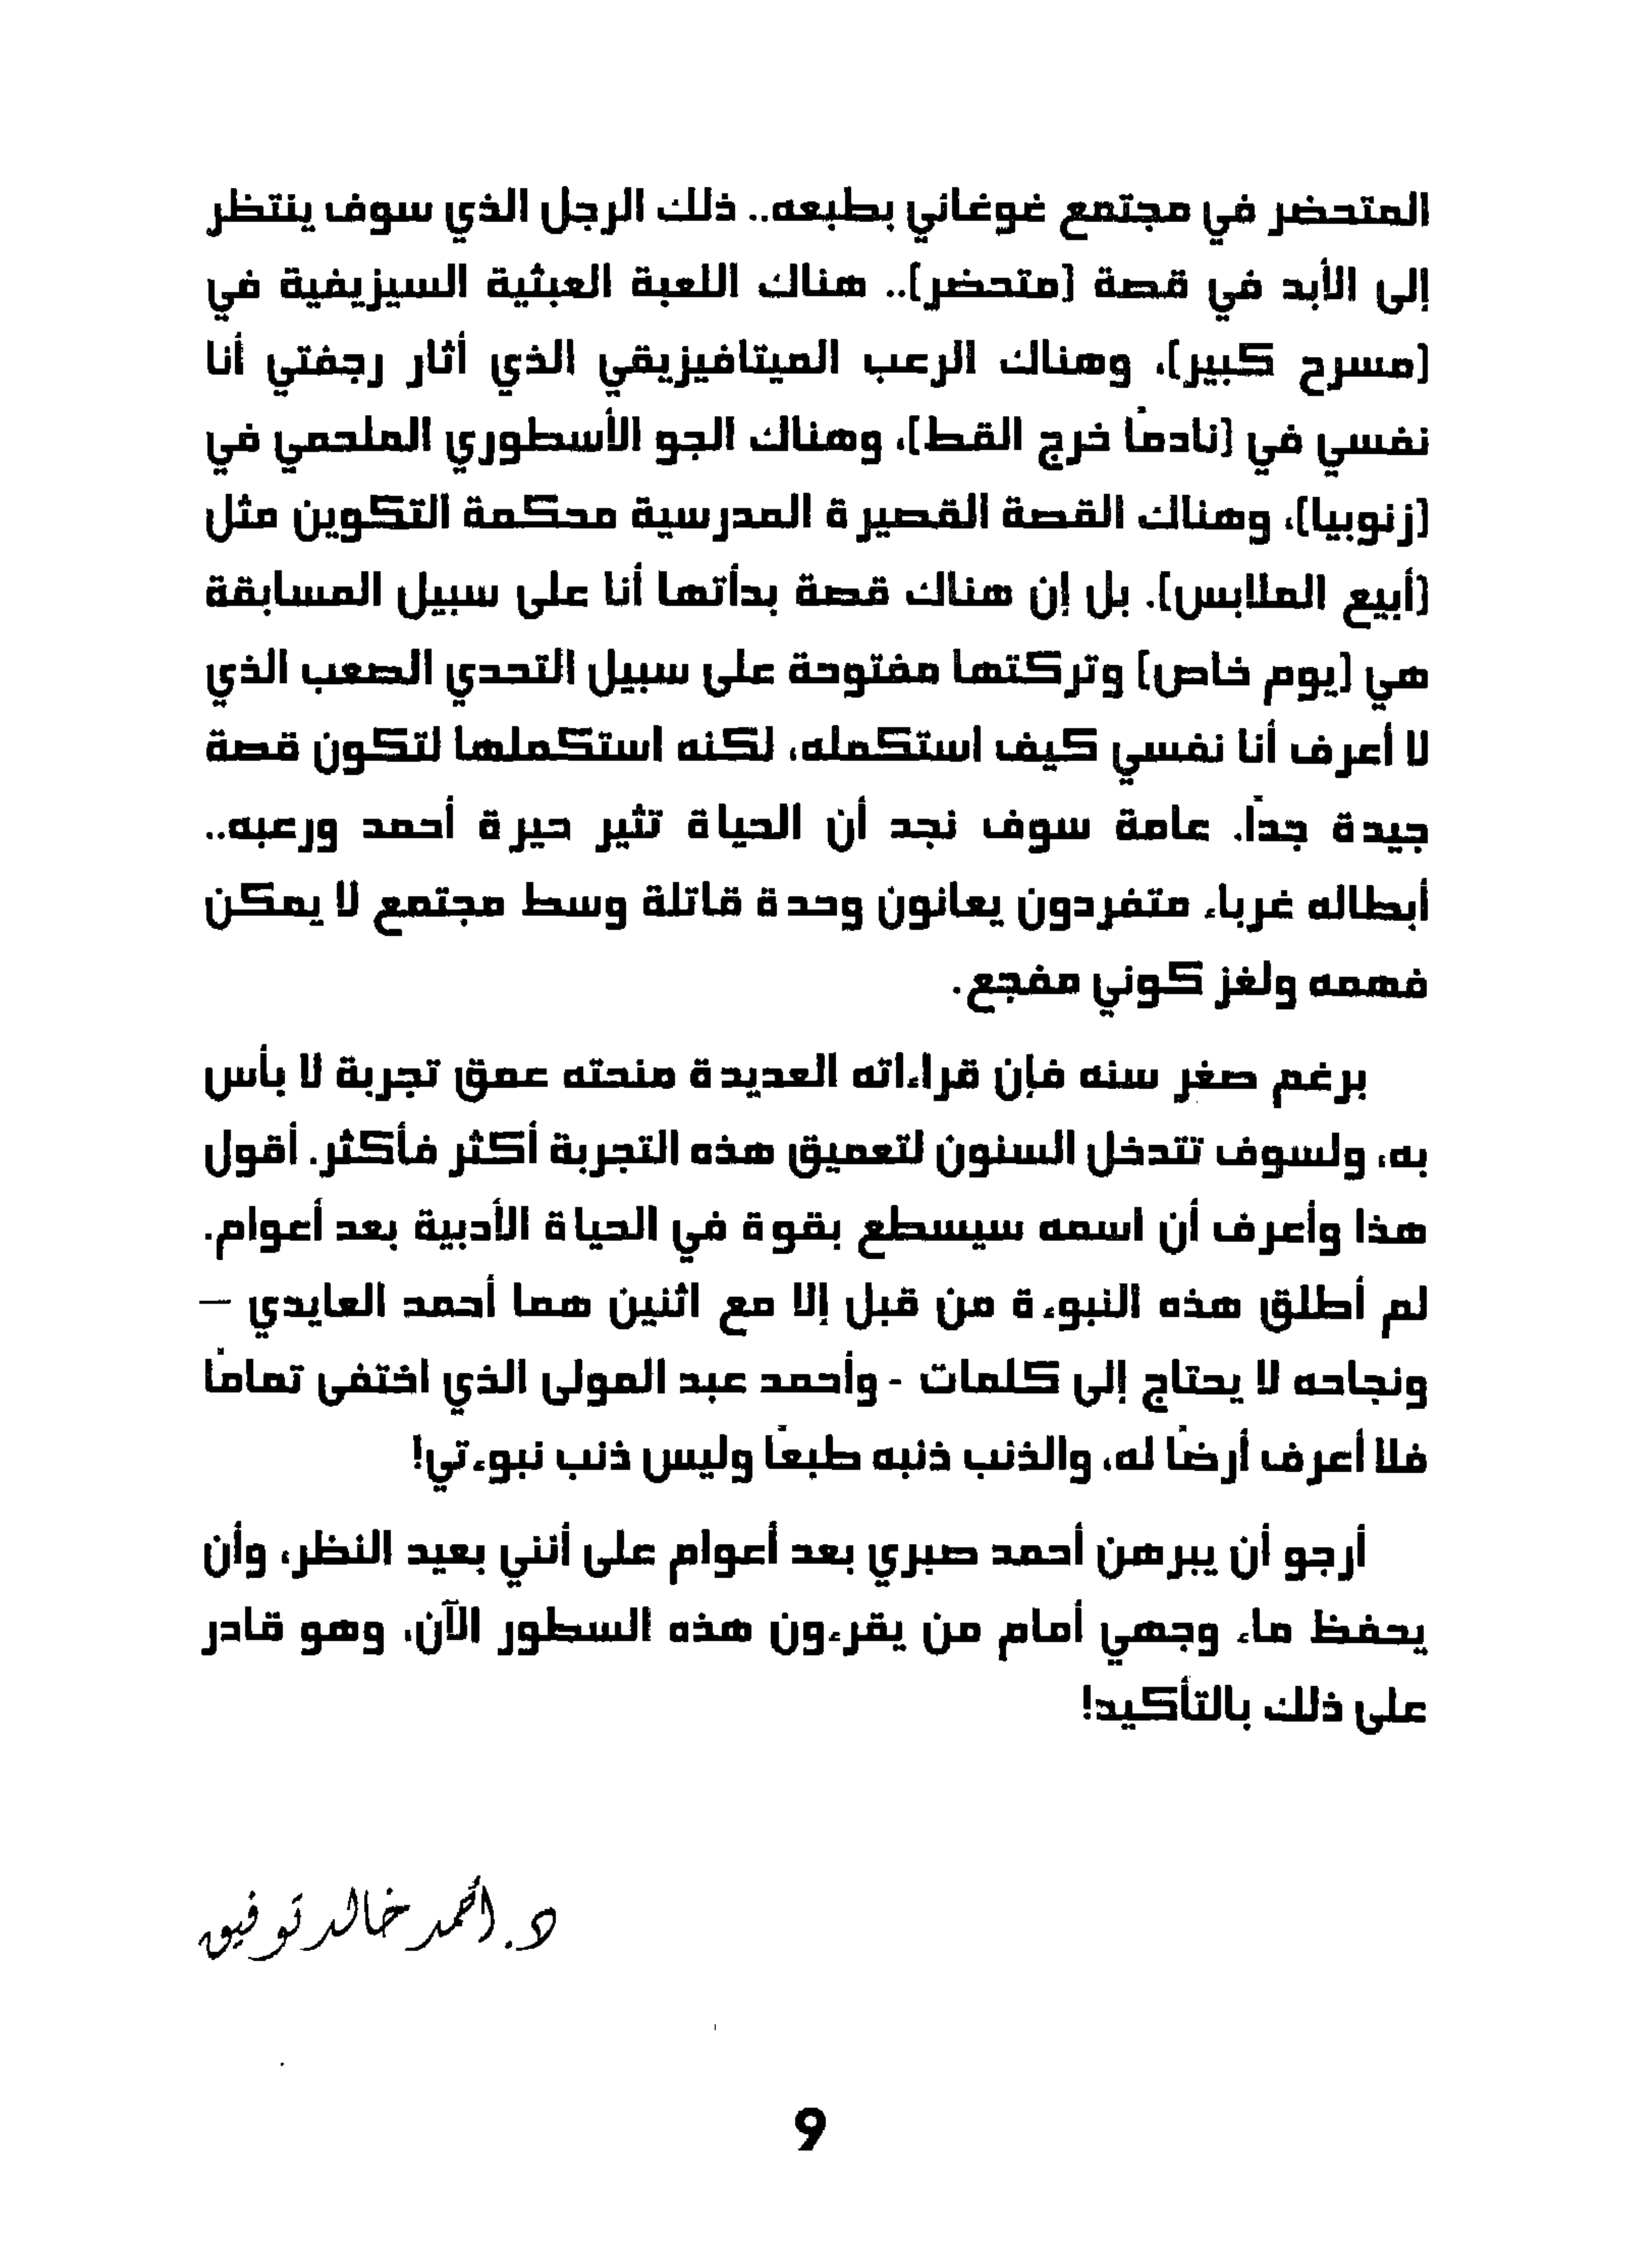 المتحضر في مجتمع غوغاني بطبعه.. ذلك الرجل الذي سوف ينتظر
إلى الأبد في قصة (متحضر).. هناك اللعبة العبثية السيزيفية في
(مسرح كبير)، وهناك الرعب الميتافيزيقي الذي أثار رجفتي أنا
نفسي في (نادمًا خرج القط)، وهناك الجو الأسطوري الملحمي في
(زنوبيا)، وهناك القصة القصيرة المدرسية محكمة التكوين مثل
(أبيع الملابس). بل إن هناك قصة بدأتها أنا على سبيل المسابقة
هي (يوم خاص) وتركتها مفتوحة على سبيل التحدي الصعب الذي
لا أعرف أنا نفسي كيف استكمله، لكنه استكملها لتكون قصة
جيدة جدًا. عامة سوف نجد أن الحياة تثير حيرة أحمد ورعبه..
أبطاله غرباء متفردون يعانون وحدة قاتلة وسط مجتمع لا يمكن
فهمه ولغز كوني مفجع.
برغم صغر سنه فإن قراءاته العديدة منحته عمق تجربة لا بأس
به، ولسوف تتدخل السنون لتعميق هذه التجربة أكثر فأكثر. أقول
هذا وأعرف أن اسمه سيسطع بقوة في الحياة الأدبية بعد أعوام.
لم أطلق هذه النبوءة من قبل إلا مع اثنين هما أحمد العايدي –
ونجاحه لا يحتاج إلى كلمات - وأحمد عبد المولى الذي اختفى تمامًا
فلا أعرف أرضًا له، والذنب ذنبه طبعًا وليس ذنب نبوءتي!
أرجو أن يبرهن أحمد صبري بعد أعوام على أنني بعيد النظر، وأن
يحفظ ماء وجهي أمام من يقرءون هذه السطور الآن، وهو قادر
على ذلك بالتأكيد!
د. أحمد خالد توفيق
9